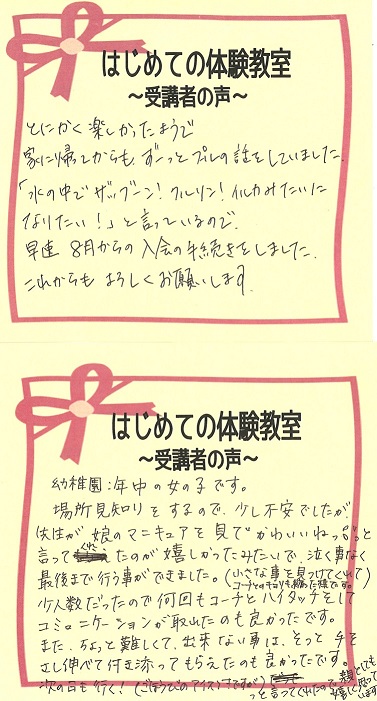 はじめての体験教室
～受講者の声～
とにかく楽しかったようで
家に帰ってからも、ずーっとプールの話をしていました。
「水の中でザッブーン！クルリン！イルカみたいに
なりたい！」と言っているので、
早速 8月からの入会の手続きをしました。
これからも よろしくお願いします。
はじめての体験教室
～受講者の声～
幼稚園：年中の女の子です。
場所見知りをするので、少し不安でしたが
先生が 娘のマニキュアを見て"かわいいね
言ってくれたのが嬉しかったみたいで、泣く事なく
最後まで行う事ができました。(小さな事を見つけてくれて
少人数だったので何回もコーチとハイタッチをして
コミュニケーションが取れたのも良かったです。
また、ちょっと難しくて、出来ない事は、そっと手を
さし伸べて付き添ってもらえたのも良かったです。
次の日も行く！(ごほうびのアイス
っと言ってくれたので、親としても
嬉しく思って
います